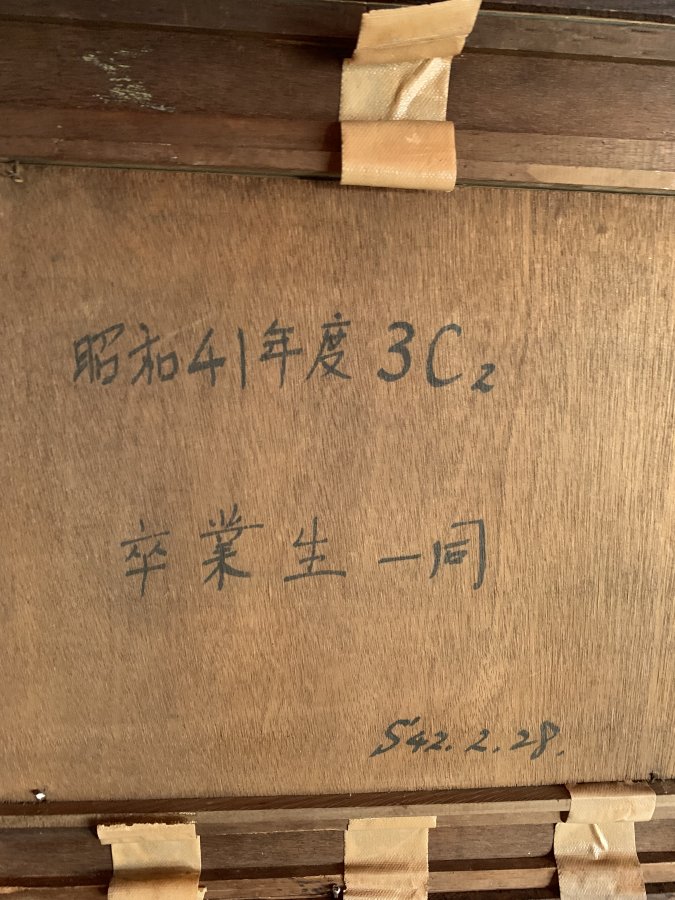 昭和41年度 3C₂
卒業生一同
S42.2.28.